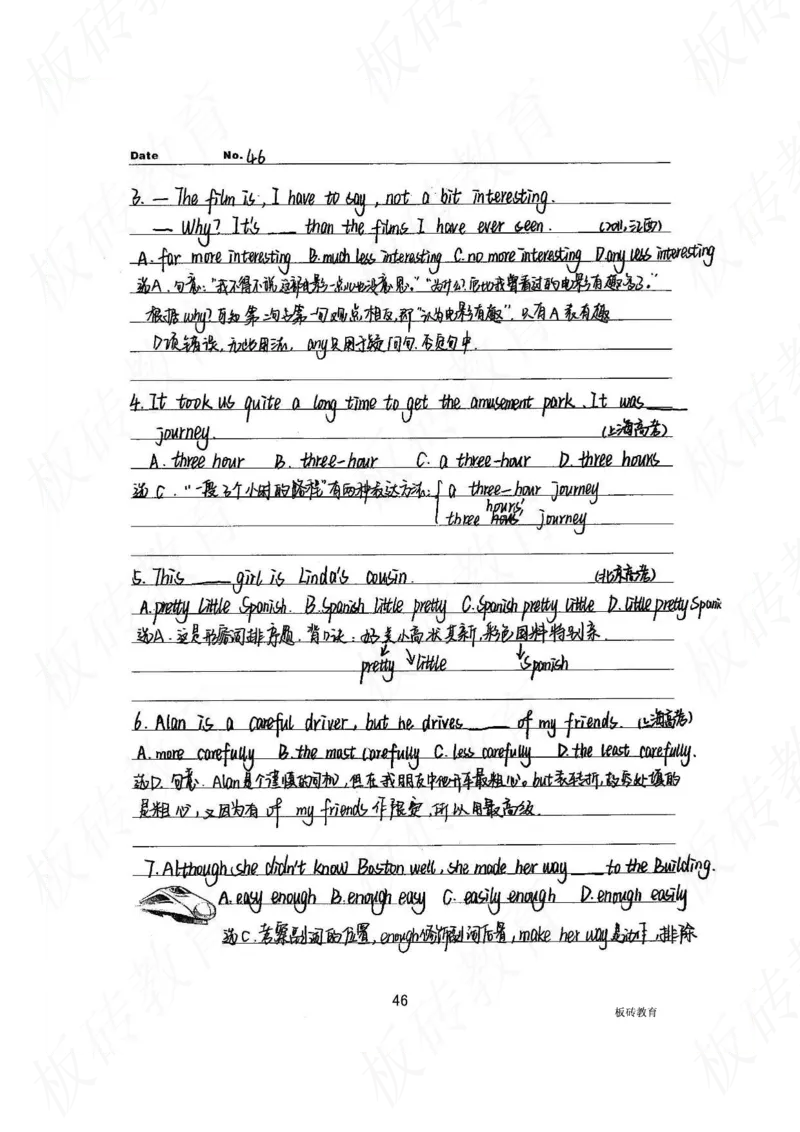 Date No. 46
3. — The film is, I have to say, not a bit interesting.
— Why? It's ___ than the films I have ever seen. (2011,江西)
A. far more interesting B. much less interesting C. no more interesting D. any less interesting
选A. 句意:“我不得不说这部电影一点儿也没意思。”“为什么?它比我曾看过的电影有趣多了。”
根据why?可知第二句与第一句观点相反,即“认为电影有趣”,只有A表有趣
D项错误,无此用法, any只用于疑问句.否定句中.
4. It took us quite a long time to get the amusement park. It was ___
journey. (上海高考)
A. three hour B. three-hour C. a three-hour D. three hours
选C. “一段3个小时的路程”有两种表达方法: a three-hour journey
three hours' journey
5. This ___ girl is Linda's cousin. (北京高考)
A. pretty little Spanish. B. Spanish little pretty C. Spanish pretty little D. little pretty Spanis
选A. 这是形容词排序题, 背口诀: 好美小高状其新,彩色国料特别亲
pretty little Spanish
6. Alan is a careful driver, but he drives ___ of my friends. (上海高考)
A. more carefully B. the most carefully C. less carefully D. the least carefully.
选D. 句意: Alan是个谨慎的司机,但在我朋友中他开车最粗心。but表转折,故要处填的
是粗心,又因为有 of my friends 作限定,所以用最高级.
7. Although she didn't know Boston well, she made her way ___ to the Building.
A. easy enough B. enough easy C. easily enough D. enough easily
选C. 考察副词的位置, enough修饰副词后置, make her way是动作,排除
46
板砖教育